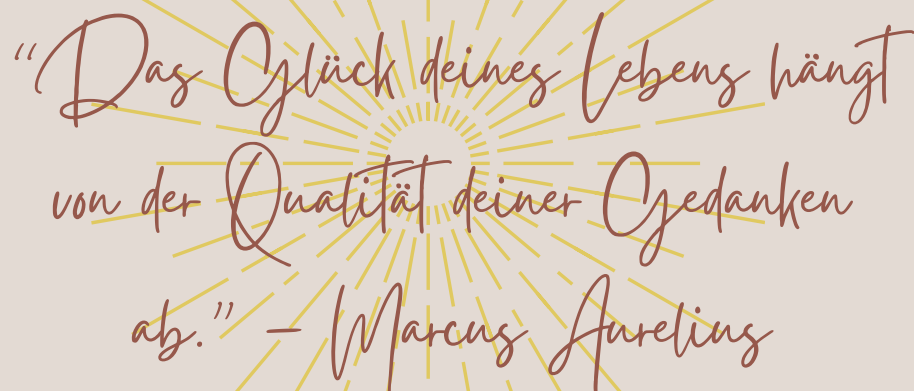 “Das Glück deines Lebens hängt
von der Qualität deiner Gedanken
ab.” – Marcus Aurelius